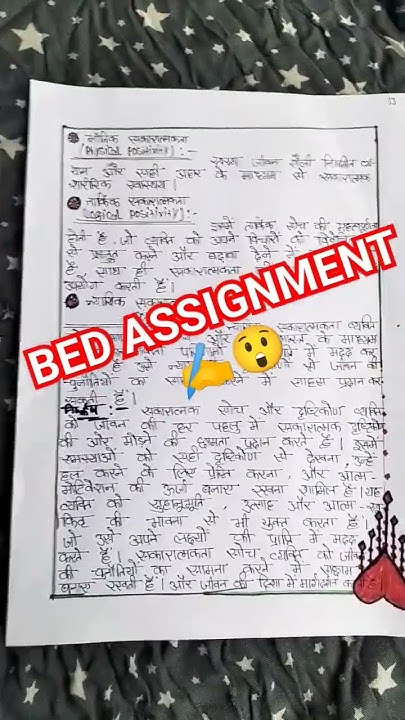 13
भौतिक सकारात्मकता
(Physical Positivity) :-
स्वस्थ्य जीवन शैली नियमित व्या
याम और सही आहार के माध्यम से सकारात्मक
शारीरिक स्वास्थ्य।
तार्किक सकारात्मकता
(Logical Positivity) :-
इसमें तार्किक सोच की महत्वपूर्णता
होती है जो व्यक्ति को अपने विचारों को
से प्रस्तुत करने और बढ़ावा देने में
है साथ ही सकारात्मकता
उपयोग करती है।
BED ASSIGNMENT
सकारात्मकता व्यक्ति
के माध्यम
में मदद कर
से जीवन की
चुनौतियों का करने में साहस प्रदान कर
सकती है।
निष्कर्ष :- सकारात्मक सोच और दृष्टिकोण व्यक्ति
को जीवन की हर पहलू में सकारात्मक दृष्टिकोण
की ओर मोड़ने की क्षमता प्रदान करते हैं। इसमें
समस्याओं को सही दृष्टिकोण से देखना, उन्हें
हल करने के लिए प्रेरित करना, और आत्म-
मोटिवेशन की ऊर्जा बनाए रखना शामिल है। यह
व्यक्ति को सहानुभूति, उत्साह और आत्म-
की भावना से भी युक्त करता है।
जो उसे अपने लक्ष्यों की प्राप्ति में मदद
करते हैं। सकारात्मकता सोच व्यक्ति को जीवन
की चुनौतियों का सामना करने में सक्षम
बनाए रखती है। और जीवन की दिशा में मार्गदर्शन करती है।